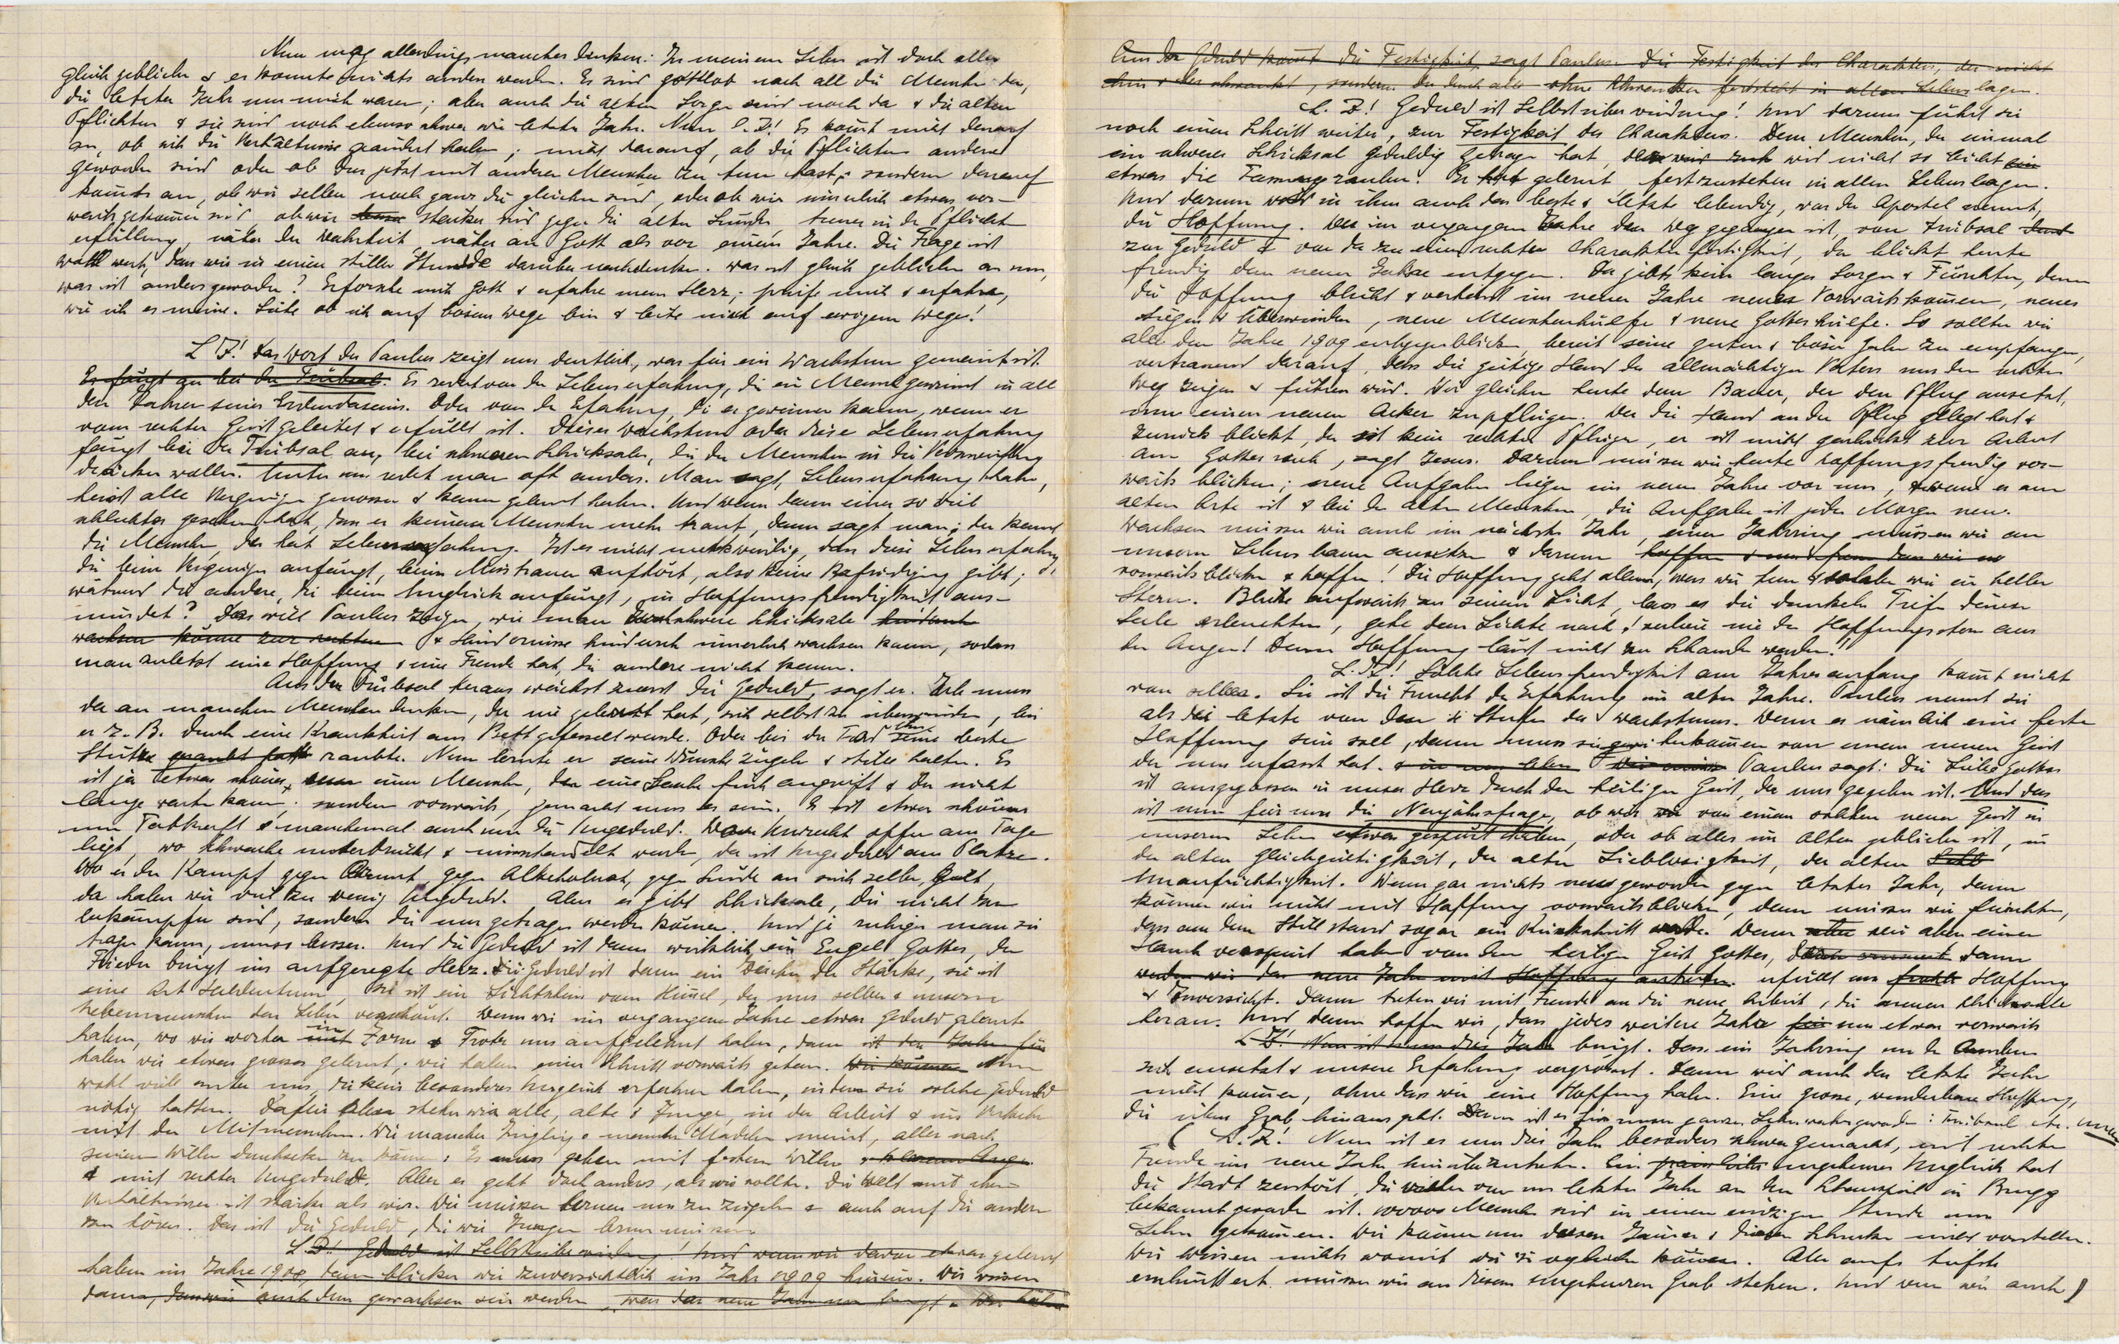 Nun mag allerdings mancher denken: In meinem Leben ist doch alles
gleich geblieben & es konnte nichts anders werden. Es sind gottlob noch all die Menschen da,
die letztes Jahr um mich waren; aber auch die alten Sorgen sind noch da & die alten
Pflichten & sie sind noch ebenso schwer wie letztes Jahr. Nun L. Z.! Es kommt nicht darauf
an, ob sich die Verhältnisse geändert haben; nicht darauf, ob die Pflichten andere
geworden sind oder ob du jetzt mit anderen Menschen zu tun hast; sondern darauf
kommts an, ob wir selber noch ganz die gleichen sind, oder ob wir innerlich etwas vor-
wärts gekommen sind, ob wir stärker sind gegen die alten Sünden, treuer in der Pflicht-
erfüllung, näher der Wahrheit, näher an Gott als vor einem Jahre. Die Frage ist
wohl wert, dass wir in einer stillen Stunde darüber nachdenken. Was ist gleich geblieben an uns,
was ist anders geworden? Erforsche mich Gott & erfahre mein Herz; prüfe mich & erfahre,
wie ich es meine. Siehe ob ich auf bösem Wege bin & leite mich auf ewigem Wege!
L. Z.! Das Wort des Paulus zeigt uns deutlich, was für ein Wachstum gemeint ist.
Es fängt an bei der Trübsal. Es redet von der Lebenserfahrung, die ein Mensch gewinnt in all
den Jahren seines Erdendaseins. Oder von der Erfahrung, die er gewinnen kann, wenn er
vom rechten Geist geleitet & erfüllt ist. Dieses Wachstum oder diese Lebenserfahrung
fängt bei der Trübsal an, bei schweren Schicksalen, die den Menschen in die Verzweiflung
drücken wollen. Unter uns redet man oft anders. Man sagt, Lebenserfahrung haben,
heisst alle Vergnügen genossen & kennen gelernt haben. Und wenn dann einer so viel
schlechtes gesehen hat, dass er keinem Menschen mehr traut, dann sagt man: der kennt
die Menschen, der hat Lebenserfahrung. Ist es nicht merkwürdig, dass diese Lebenserfahrung,
die beim Vergnügen anfängt, beim Misstrauen aufhört, also keine Befriedigung gibt;
während die andere, die beim Unglück anfängt, in Hoffnungsfreudigkeit aus-
mündet? Das will Paulus zeigen, wie man durch schwere Schicksale hindurch
wachsen könne zur rechten & Hindernisse hindurch innerlich wachsen kann, sodass
man zuletzt eine Hoffnung & eine Freude hat, die andere nicht kennen.
Aus der Trübsal heraus wächst zuerst die Geduld, sagt er. Ich muss
da an manchen Menschen denken, der nie gelernt hat, sich selbst zu überwinden, bis
er z. B. durch eine Krankheit ans Bett gefesselt wurde. Oder bis der Tod ihm seine beste
Stütze raubte. Nun lernte er seine Wünsche zügeln & stille halten. Es
ist ja etwas schönes, um einen Menschen, der eine Sache frisch angreift & der nicht
lange warten kann: sondern vorwärts, gemacht muss es sein. Es ist etwas schönes
um Tatkraft & manchmal auch um die Ungeduld. Wo Unrecht offen am Tage
liegt, wo Schwache unterdrückt & misshandelt werden, da ist Ungeduld am Platze.
Wo es den Kampf gegen Armut, gegen Alkoholnot, gegen Sünde an sich selber gilt,
da haben wir viel zu wenig Ungeduld. Aber es gibt Schicksale, die nicht zu
bekämpfen sind, sondern die nur getragen werden können. Und je ruhiger man sie
tragen kann, umso besser. Und die Geduld ist dann wirklich ein Engel Gottes, der
Frieden bringt ins aufgeregte Herz. Die Geduld ist dann ein Zeichen der Stärke, sie ist
eine Art Heldentum, sie ist ein Lichtschein vom Himmel, der uns selber & unsern
Nebenmenschen das Leben verschönt. Wenn wir im vergangenen Jahre etwas Geduld gelernt
haben, wo wir vorher in Zorn & Trotz uns aufgelehnt haben, dann ist das Jahr für
haben wir etwas grosses gelernt; wir haben einen Schritt vorwärts getan. Wir können Nun
wohl viele unter uns, die kein besonderes Unglück erfahren haben, in dem sie solche Geduld
nötig hatten. Dafür aber stehen wir alle, alte & Junge, in der Arbeit & im Verkehr
mit den Mitmenschen. Wie mancher Jüngling & manches Mädchen meint, alles nach
seinem Willen durchsetzen zu können: Es muss gehen mit festem Willen & klarem Auge
& mit rechter Ungeduld. Aber es geht doch anders, als wir wollten. Die Welt mit ihren
Verhältnissen ist stärker als wir. Wir müssen lernen uns zu zügeln & auch auf die andern
zu hören. Das ist die Geduld, die wir Jungen lernen müssen.
L. Z.! Geduld ist Selbstüberwindung! Und wenn wir davon etwas gelernt
haben im Jahre 1908, dann blicken wir zuversichtlich ins Jahr 1909 hinein. Wir wissen
dann, dass wir auch dem gewachsen sein werden, was das neue Jahr uns bringt. Wir haben
Aus der Geduld kommt die Festigkeit, sagt Paulus. Die Festigkeit des Charakters, der nicht
hin & her schwankt, sondern der durch alles ohne Schwanken feststeht in allen Lebenslagen.
L. Z.! Geduld ist Selbstüberwindung! Und darum führt sie
noch einen Schritt weiter, zur Festigkeit des Charakters. Dem Menschen, der einmal
ein schweres Schicksal geduldig getragen hat, wird nicht so leicht ein
etwas die Fassung rauben. Er hat gelernt, festzustehen in allen Lebenslagen.
Und darum wird in ihm auch das beste & letzte lebendig, was der Apostel nennt,
die Hoffnung. Wer im vergangen Jahre den Weg gegangen ist, von Trübsal
zur Geduld & von da zu einer rechten Charakterfestigkeit, der blickt heute
freudig dem neuen Jahre entgegen. Da gibts kein banges Sorgen & Fürchten, denn
die Hoffnung blüht & verheisst im neuen Jahre neues Vorwärtskommen, neues
Siegen & Überwinden, neue Menschenhülfe & neue Gotteshülfe. So sollten wir
alle dem Jahre 1909 entgegenblicken bereit seine guten & bösen Gaben zu empfangen,
vertrauend darauf, dass die gütige Hand des allmächtigen Vaters uns den rechten
Weg zeigen & führen wird. Wir gleichen heute dem Bauer, der den Pflug ansetzt,
um einen neuen Acker zu pflügen. Wer die Hand an den Pflug gelegt hat &
zurück blickt, der ist kein rechter Pflüger, er ist nicht geschickt zur Arbeit
am Gottesreich, sagt Jesus. Darum müssen wir heute hoffnungsfreudig vor-
wärts blicken; neue Aufgaben liegen im neuen Jahre vor uns, & wenn es am
alten Orte ist & bei den alten Menschen, die Aufgabe ist jeden Morgen neu.
Wachsen müssen wir auch im nächsten Jahr, einen Jahrring müssen wir an
unserm Lebensbaum ansetzen & darum hoffen & uns freuen dass wir so
vorwärtsblicken & hoffen! Die Hoffnung geht allem, was wir tun & voran wie ein heller
Stern. Blicke aufwärts zu seinem Licht, lass es die dunkeln Tiefen deiner
Seele erleuchten, gehe dem Lichte nach! verliere nie den Hoffnungsstern aus
den Augen! Denn Hoffnung lässt nicht zu Schanden werden!
L. Z.! Solche Lebensfreudigkeit am Jahresanfang kommt nicht
von selber. Sie ist die Frucht der Erfahrung im alten Jahre. Paulus nennt sie
als die letzte von den Stufen des Wachstums. Wenn es nämlich eine feste
Hoffnung sein soll, dann muss sie herkommen von einem neuen Geist
der uns erfasst hat. Paulus sagt: Die Liebe Gottes
ist ausgegossen in unser Herz durch den heiligen Geist, der uns gegeben ist. Und das
ist nun für uns die Neujahrsfrage, ob wir von einem solchen neuen Geist in
unserm Leben etwas gespürt haben, oder ob alles im Alten geblieben ist, in
der alten Gleichgültigkeit, der alten Lieblosigkeit, der alten
Unaufrichtigkeit. Wenn gar nichts neu geworden gegen letztes Jahr, dann
können wir nicht mit Hoffnung vorwärtsblicken, dann müssen wir fürchten,
dass aus dem Stillstand sogar ein Rückschritt werde. Wenn wir aber einen
Hauch verspürt haben von dem heiligen Geist Gottes, dann
werden wir das neue Jahr mit Hoffnung antreten. erfüllt uns frohe Hoffnung
& Zuversicht. Dann treten wir mit Freude an die neue Arbeit, die neuen Schicksale
heran. Und dann hoffen wir, dass jedes weitere Jahr für uns etwas vorwärts
L. Z.! Nun ist uns dies Jahr bringt. Dass ein Jahrring um den andern
sich ansetzt & unsere Erfahrung vergrössert. Dann wird auch das letzte Jahr
nicht kommen, ohne dass wir eine Hoffnung haben. Eine grosse, wunderbare Hoffnung,
die übers Grab hinaus geht. Dann ist es für unser ganzes Leben wahr geworden: Trübsal etc.
( L. Z.! Nun ist es uns dies Jahr besonders schwer gemacht, mit rechter
Freude ins neue Jahr hinüberzutreten. Ein ungeheures Unglück hat
die Stadt zerstört, die vielen von uns letztes Jahr an dem Schauspiel in Brugg
bekannt geworden ist. 100000 Menschen sind in einer einzigen Stunde ums
Leben gekommen. Wir können uns diesen Jammer & diesen Schrecken nicht vorstellen.
Wir wissen nicht womit wir sie vergleichen können. Aber aufs tiefste
erschüttert müssen wir an diesem ungeheuren Grab stehen. Und wenn wir auch )